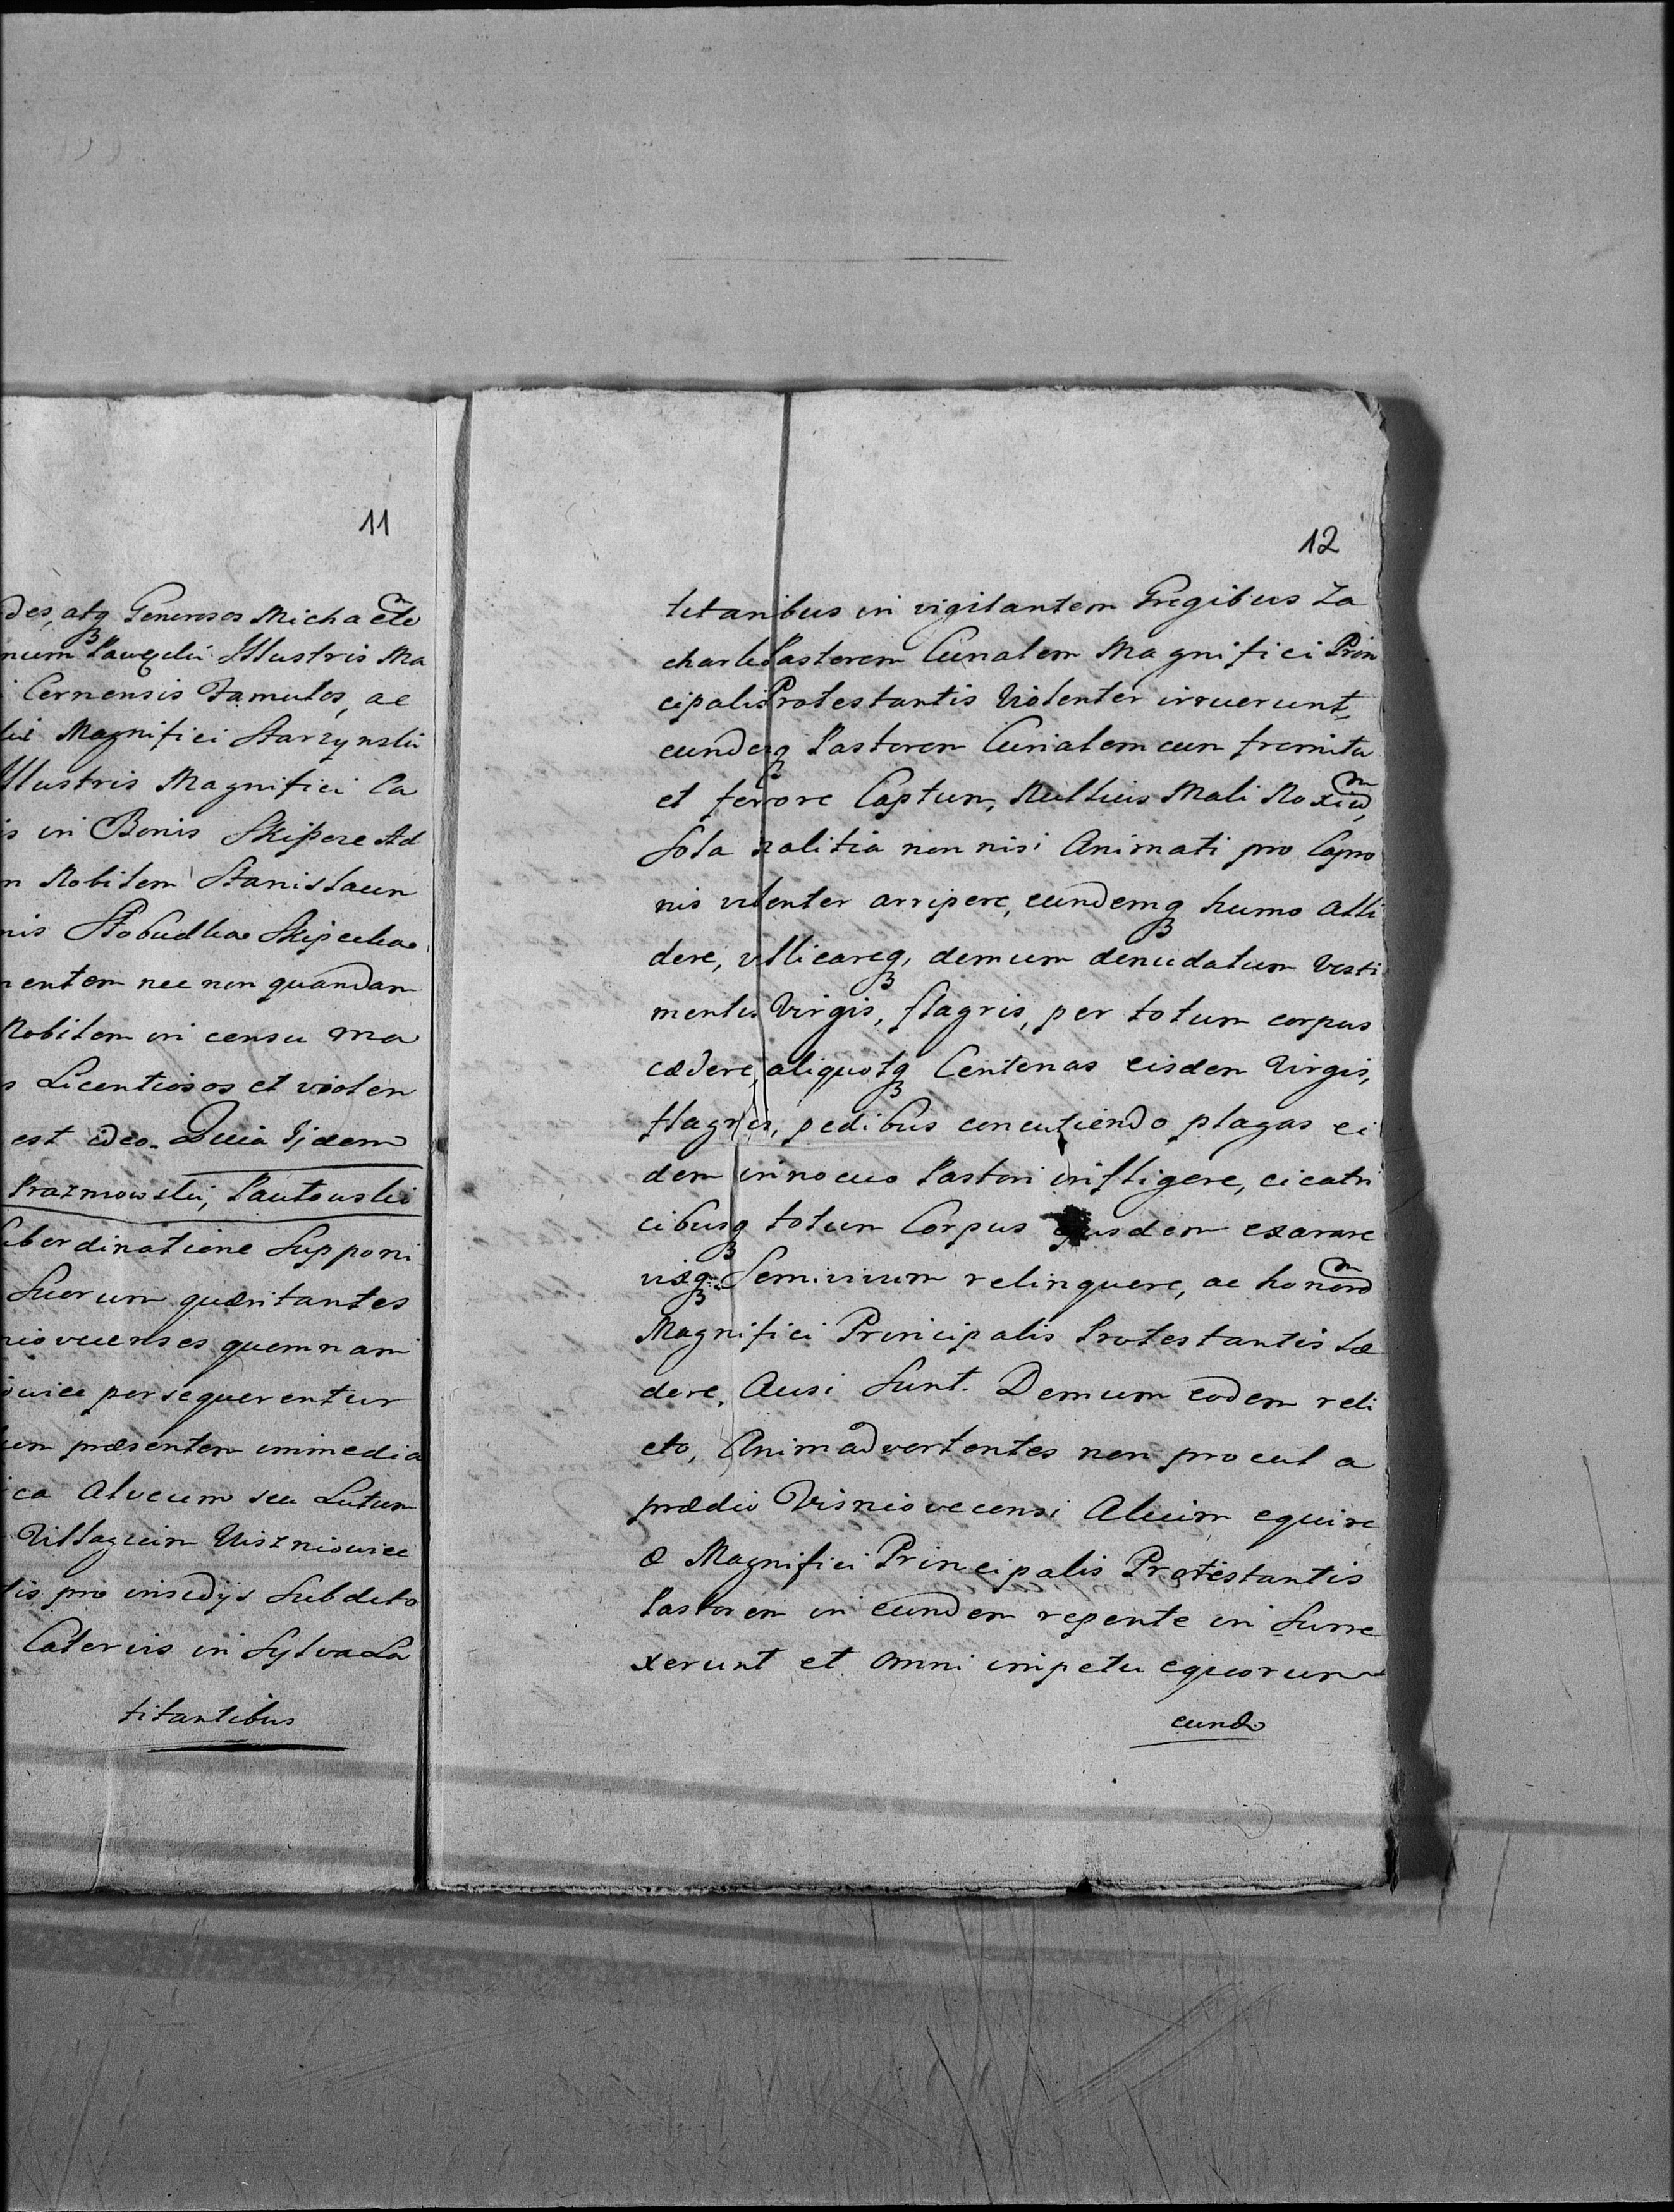 11
des, atq₃ Generosos Michaele
num Pawęski Illustris Ma
Cernensis Famulos, ac
Magnifici Starzynski
Illustris Magnifici Ca
is in Bonis Skipcze Ad
m Nobilem Stanislaum
nis Pobudka Skipecka
nentem nec non quandam
Nobilem in censu ma
s Licentiosos et violen
est ideo. Quia Ijdem
Prazmowski, Pautouski
uberdinatione Supponi
Suorum quæritantes
niovecenses quemnam
persequerentur
um præsentem immedia
ca Alveum seu Lutum
Villagium Viszniowiec
tis pro insidijs Subdito
Catervis in Sylva La
titantibus
12
titantibus in vigilantem Gregibus Za
charki Pastorem Curialem Magnifici Prin
cipalis Protestantis Violenter irruerunt,
eundeq₃ Pastorem Curialem cum fremitu
et ferrore Captum, Nullius Mali Noxium,
Sola malitia non nisi Animati pro Capro
nis violenter arripere, eundemq₃ humo alli
dere, vellicareq₃, demum denudatum Vesti
mentis Virgis, flagris, per totum corpus
cædere, aliquotq₃ Centenas eisdem Virgis,
flagris, pedibus concutiendo plagas ei
dem innocuo Pastori infligere, cicatri
cibusq₃ totum Corpus ejusdem exarare
vixq₃ Semivivum relinquere, ac honorem
Magnifici Principalis Protestantis Læ
dere, Ausi Sunt. Demum eodem reli
cto, Animadvertentes non procul a
prædio Visniovecensi Alium equire
æ Magnifici Principalis Protestantis
Pastorem in eundem repente in Surre
xerunt et omni impetu equorum
eundo